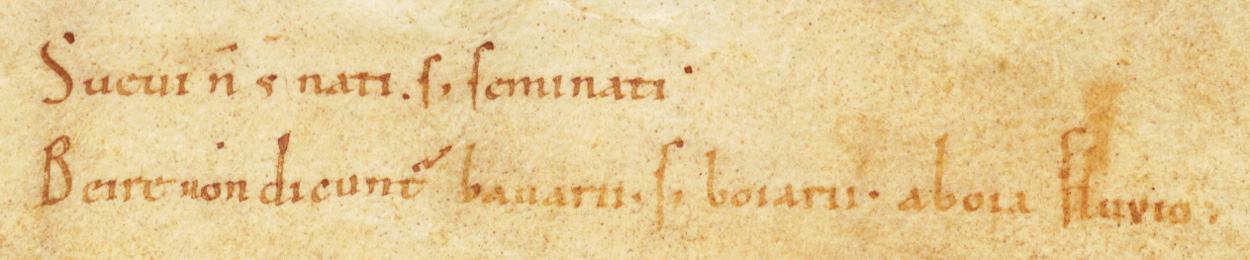 Sueui n̄ s̄ nati. s; seminati.
Beire non dicunt᷑ bauarii. s; boiarii. aboia fluuio.